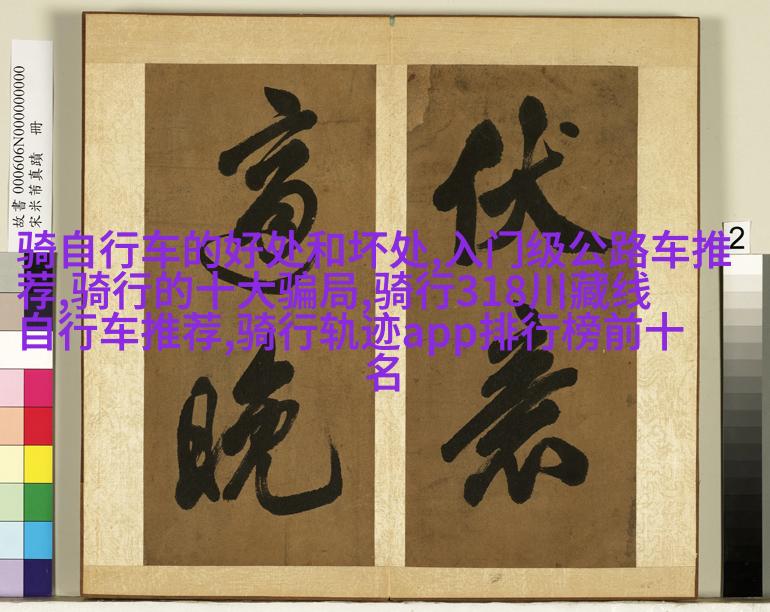 骑自行车的好处和坏处,入门级公路车推
荐,骑行的十大骗局,骑行318川藏线
自行车推荐,骑行轨迹app排行榜前十
名
伏
晚
故書 000606N000000000
宋米芾真蹟 冊
2